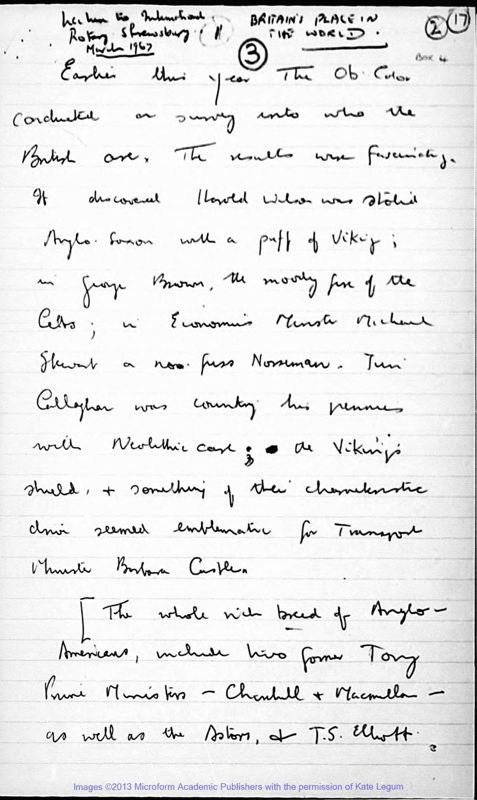 Lecture to International
Rotary Shrewsbury
March 1967
11
BRITAIN'S PLACE IN
THE WORLD.
3
2
17
BOX 4
Earlier this year The Ob. Color
conducted a survey into who the
British are. The results were fascinating.
It discovered Harold Wilson was stolid
Anglo-Saxon with a puff of Viking;
in George Brown, the moody fire of the
Celts; in Economics Minister Michael
Stewart a no-fuss Norseman. Jim
Callaghan was counting his pennies
with Neolithic care; the Viking's
shield, + something of their characteristic
drive seemed emblematic for Transport
Minister Barbara Castle.
[The whole rich breed of Anglo-
Americans, include two former Tory
Prime Ministers - Churchill + Macmillan -
as well as the Astors, + T.S. Elliott.
Images ©2013 Microform Academic Publishers with the permission of Kate Legum